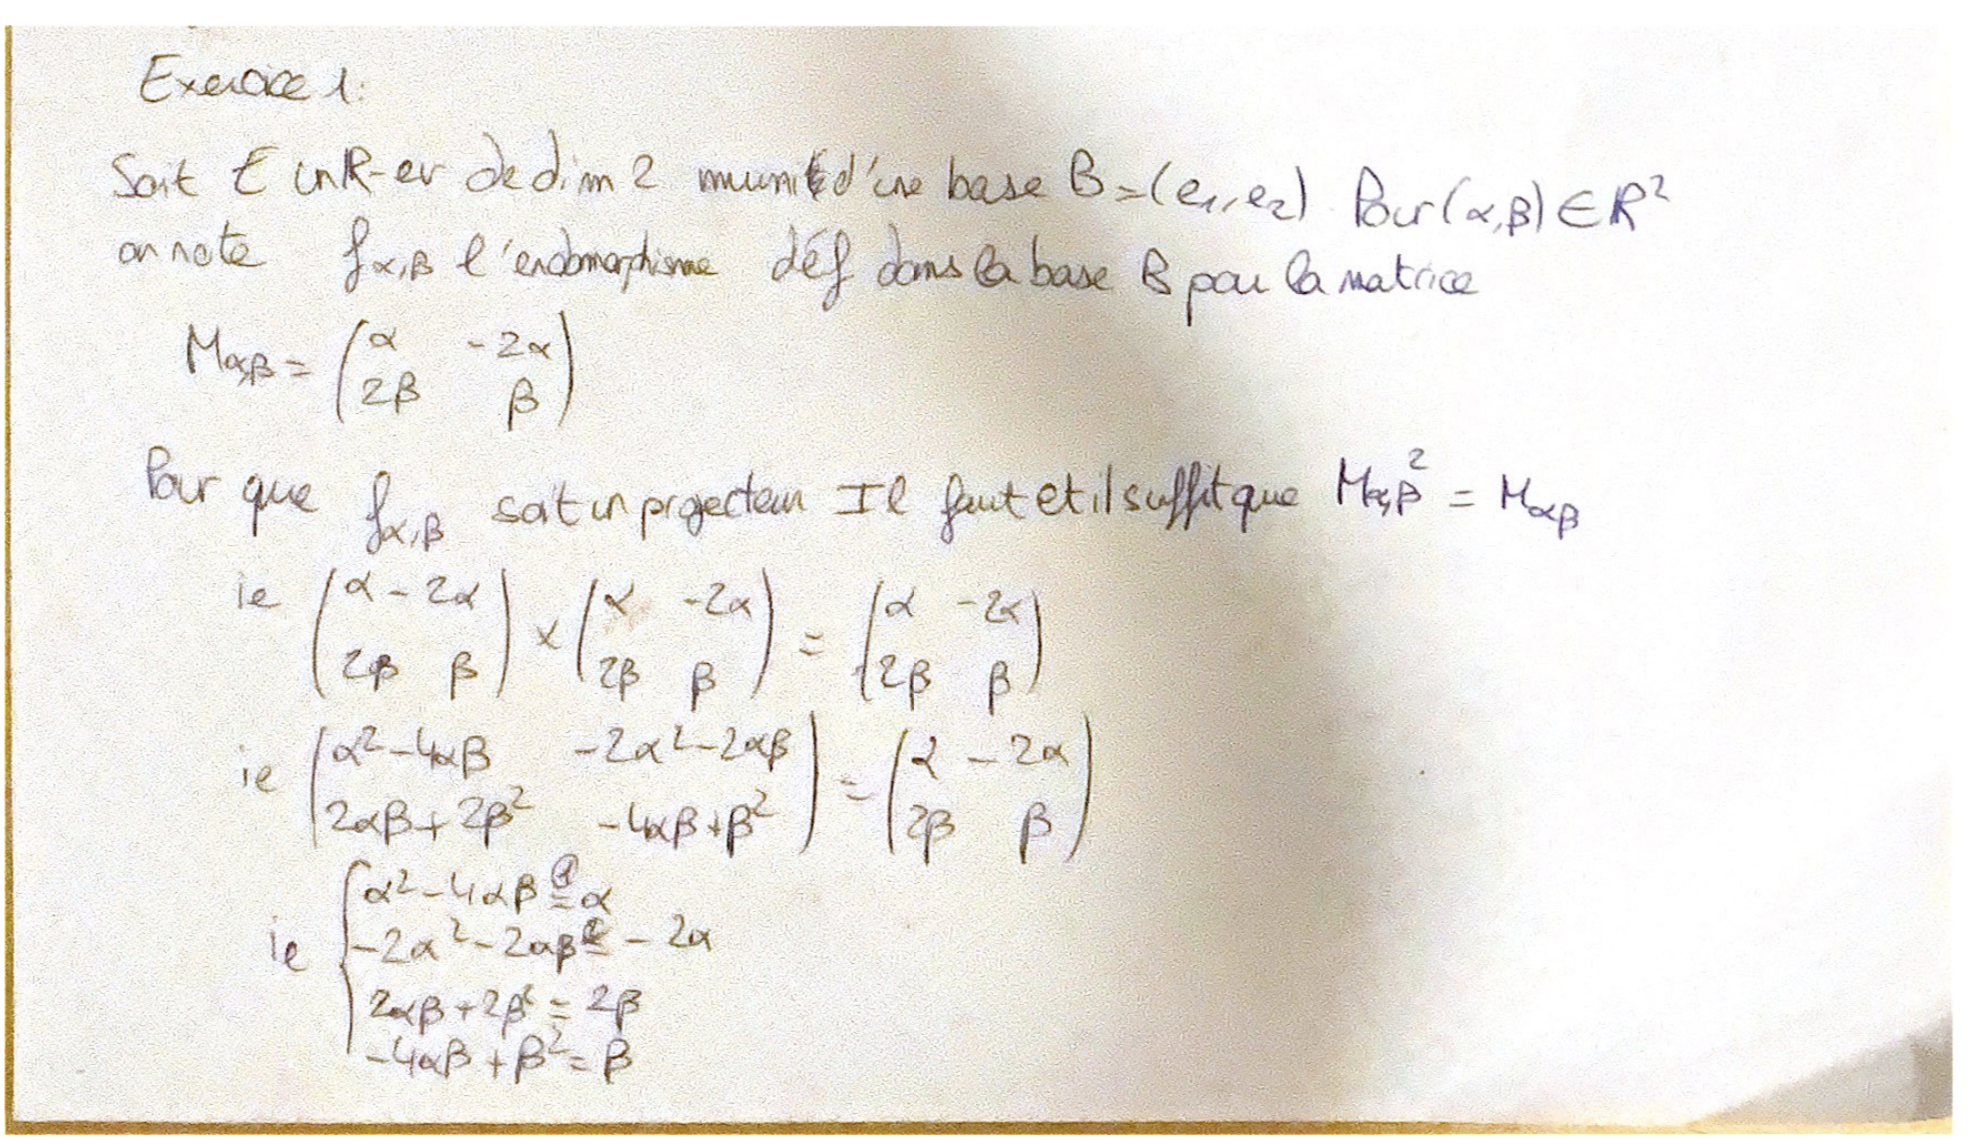 Exercice 1:
Soit E un R-ev de dim 2 muni d'une base B=(e₁,e₂). Pour (α,β) ∈ R²
on note f_{α,β} l'endomorphisme déf dans la base B par la matrice
M_{α,β} = (α -2α ; 2β β)
Pour que f_{α,β} soit un projecteur Il faut et il suffit que M_{α,β}² = M_{αβ}
ie (α -2α ; 2β β) × (α -2α ; 2β β) = (α -2α ; 2β β)
ie (α²-4αβ -2α²-2αβ ; 2αβ+2β² -4αβ+β²) = (α -2α ; 2β β)
ie { α²-4αβ =① α
-2α²-2αβ =② -2α
2αβ+2β² = 2β
-4αβ+β² = β